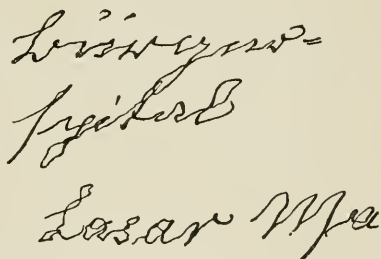 Bürger=
spital
Lasar